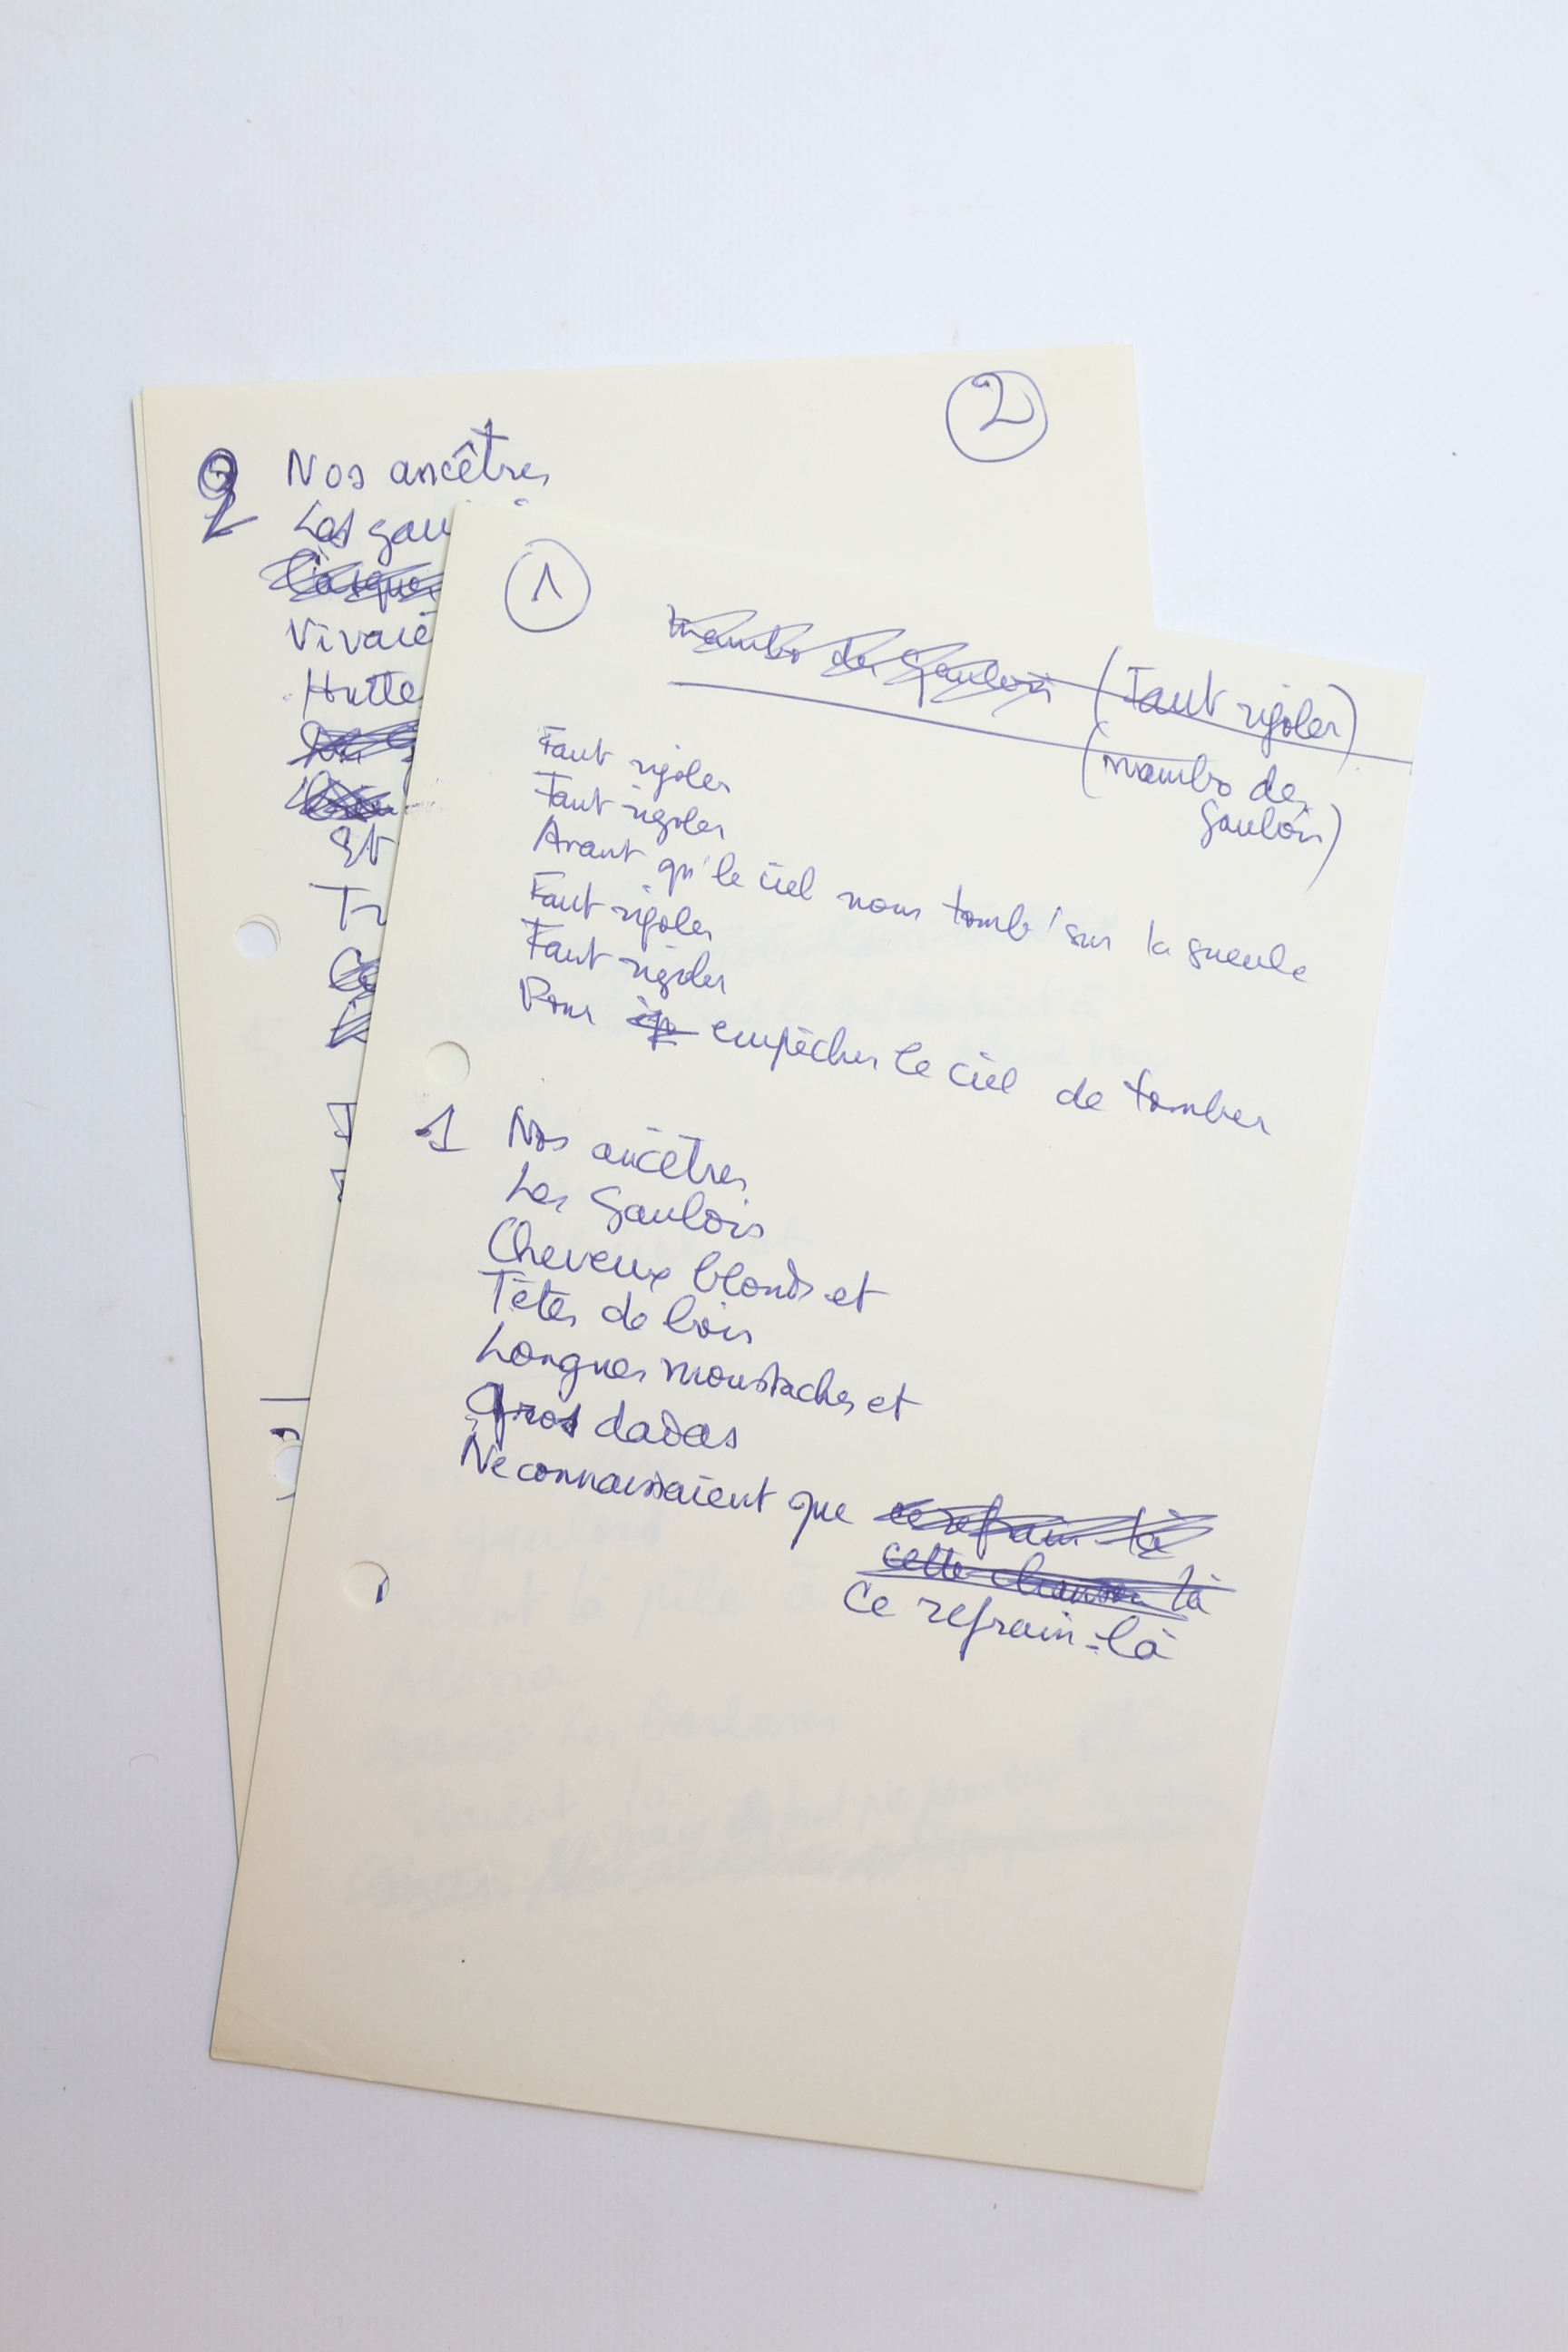 2
2 Nos ancêtres
Les gau
Vivaie
Hutte
Et
Tr
1
Mambo des Gaulois (Faut rigoler)
(Mambo des
Gaulois)
Faut rigoler
Faut rigoler
Avant qu'le ciel nous tomb' sur la gueule
Faut rigoler
Faut rigoler
Pour empêcher le ciel de tomber
1 Nos ancêtres
Les Gaulois
Cheveux blonds et
Têtes de bois
Longues moustaches et
Gros dadas
Ne connaissaient que ce refrain-là
cette chanson là
Ce refrain-là